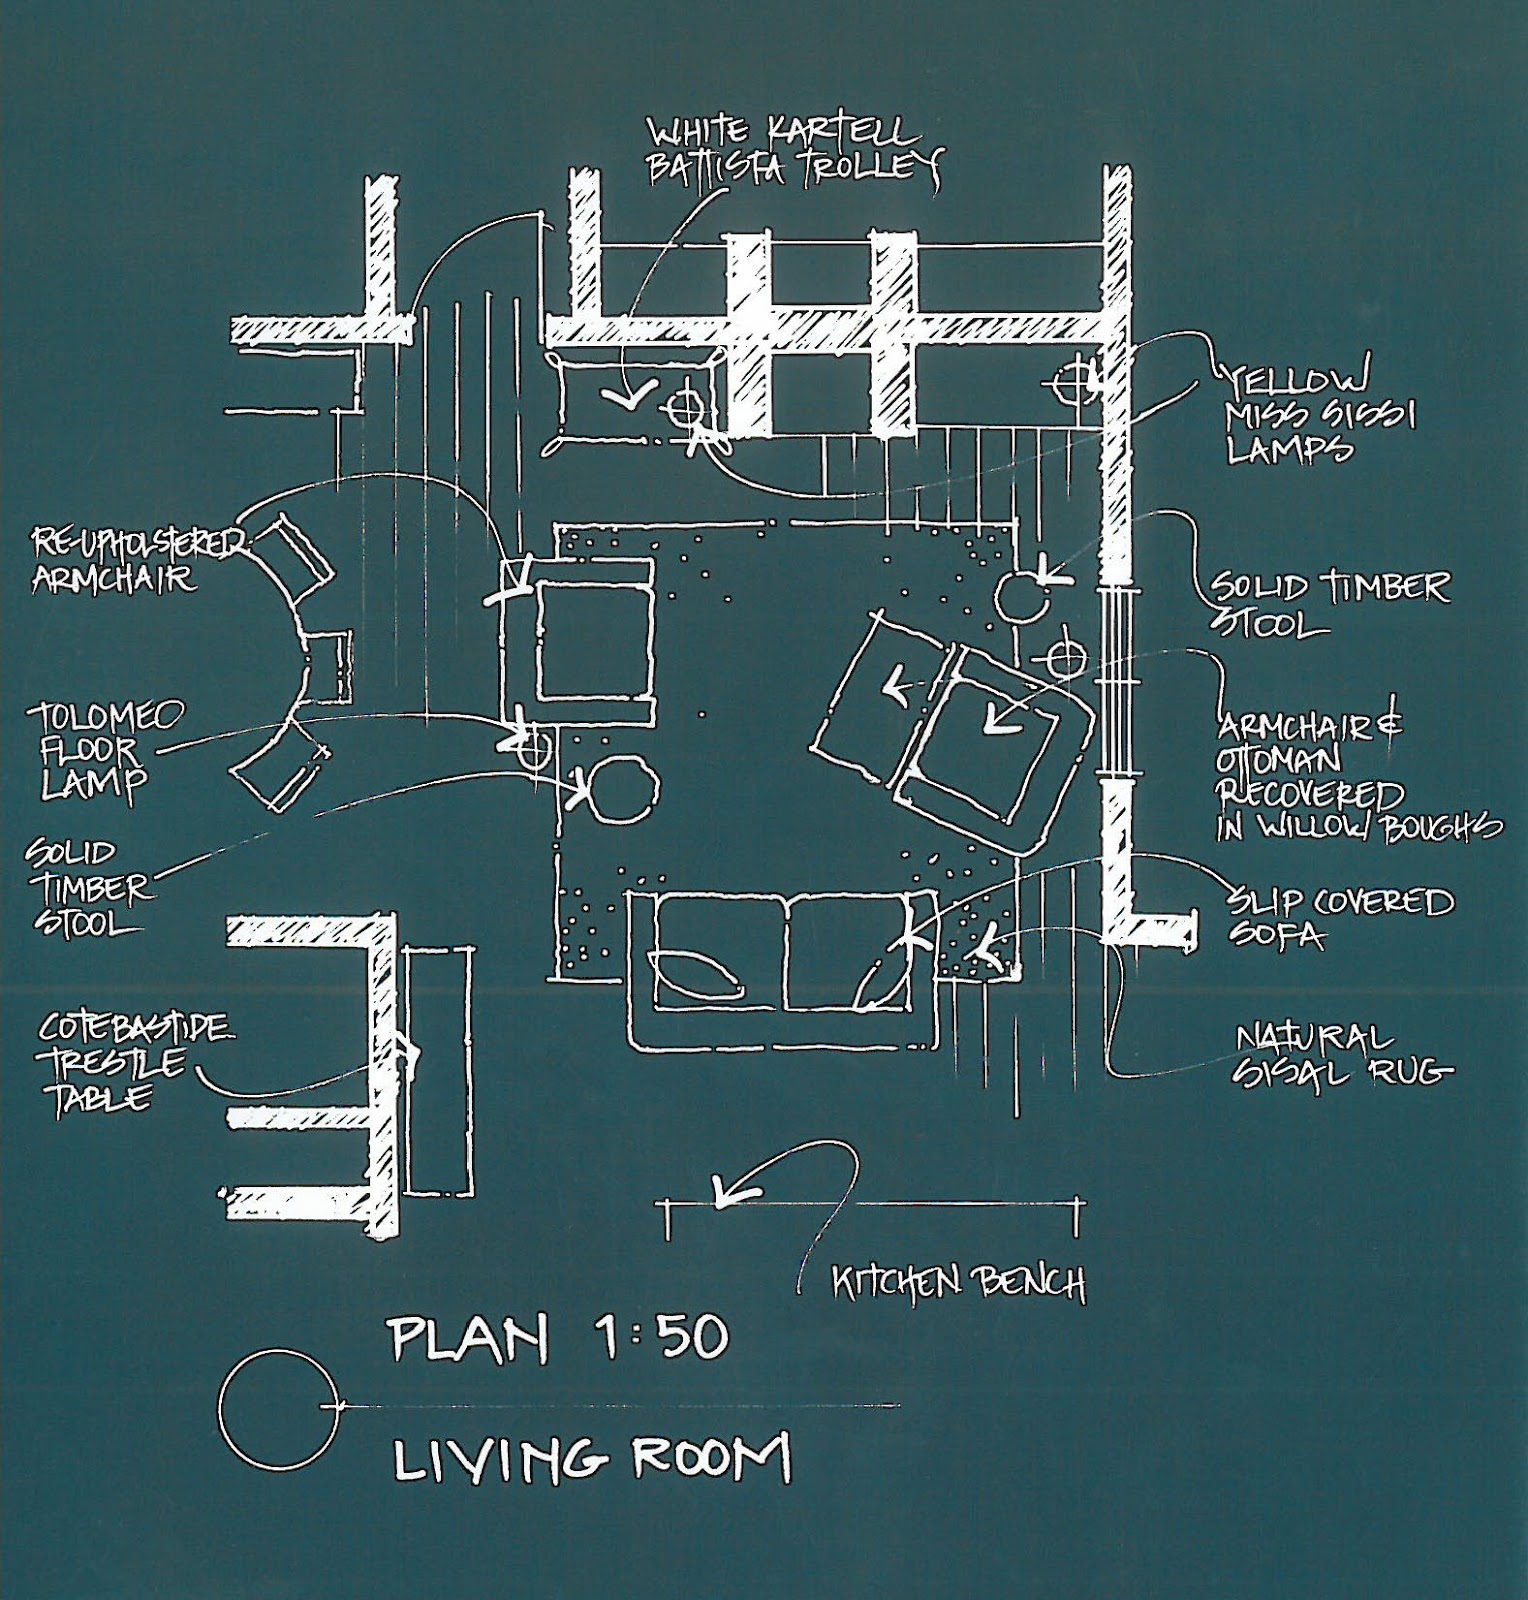 WHITE KARTELL
BATTISTA TROLLEY
YELLOW
MISS SISSI
LAMPS
RE-UPHOLSTERED
ARMCHAIR
SOLID TIMBER
STOOL
TOLOMEO
FLOOR
LAMP
ARMCHAIR &
OTTOMAN
RECOVERED
IN WILLOW BOUGHS
SOLID
TIMBER
STOOL
SLIP COVERED
SOFA
COTEBASTIDE
TRESTLE
TABLE
NATURAL
SISAL RUG
KITCHEN BENCH
PLAN 1:50
LIVING ROOM